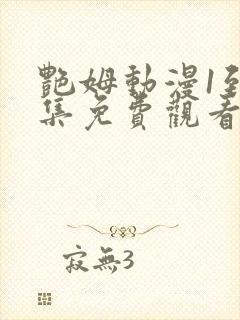 艷姆動漫1至
集免費觀看
寂無3